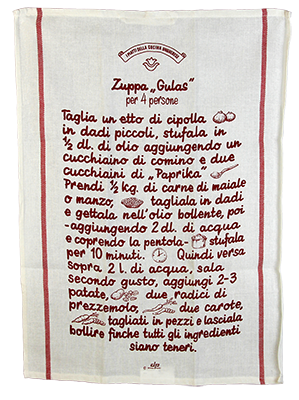 I PIATTI DELLA CUCINA UNGHERESE
Zuppa „Gulas"
per 4 persone
Taglia un etto di cipolla
in dadi piccoli, stufala in
½ dl. di olio aggiungendo un
cucchiaino di comino e due
cucchiaini di „Paprika"
Prendi ½ kg. di carne di maiale
o manzo, tagliala in dadi
e gettala nell'olio bollente, poi
-aggiungendo 2 dl. di acqua
e coprendo la pentola- stufala
per 10 minuti. Quindi versa
sopra 2 l. di acqua, sala
secondo gusto, aggiungi 2-3
patate, due radici di
prezzemolo, due carote,
tagliati in pezzi e lasciala
bollire finche tutti gli ingredienti
siano teneri.